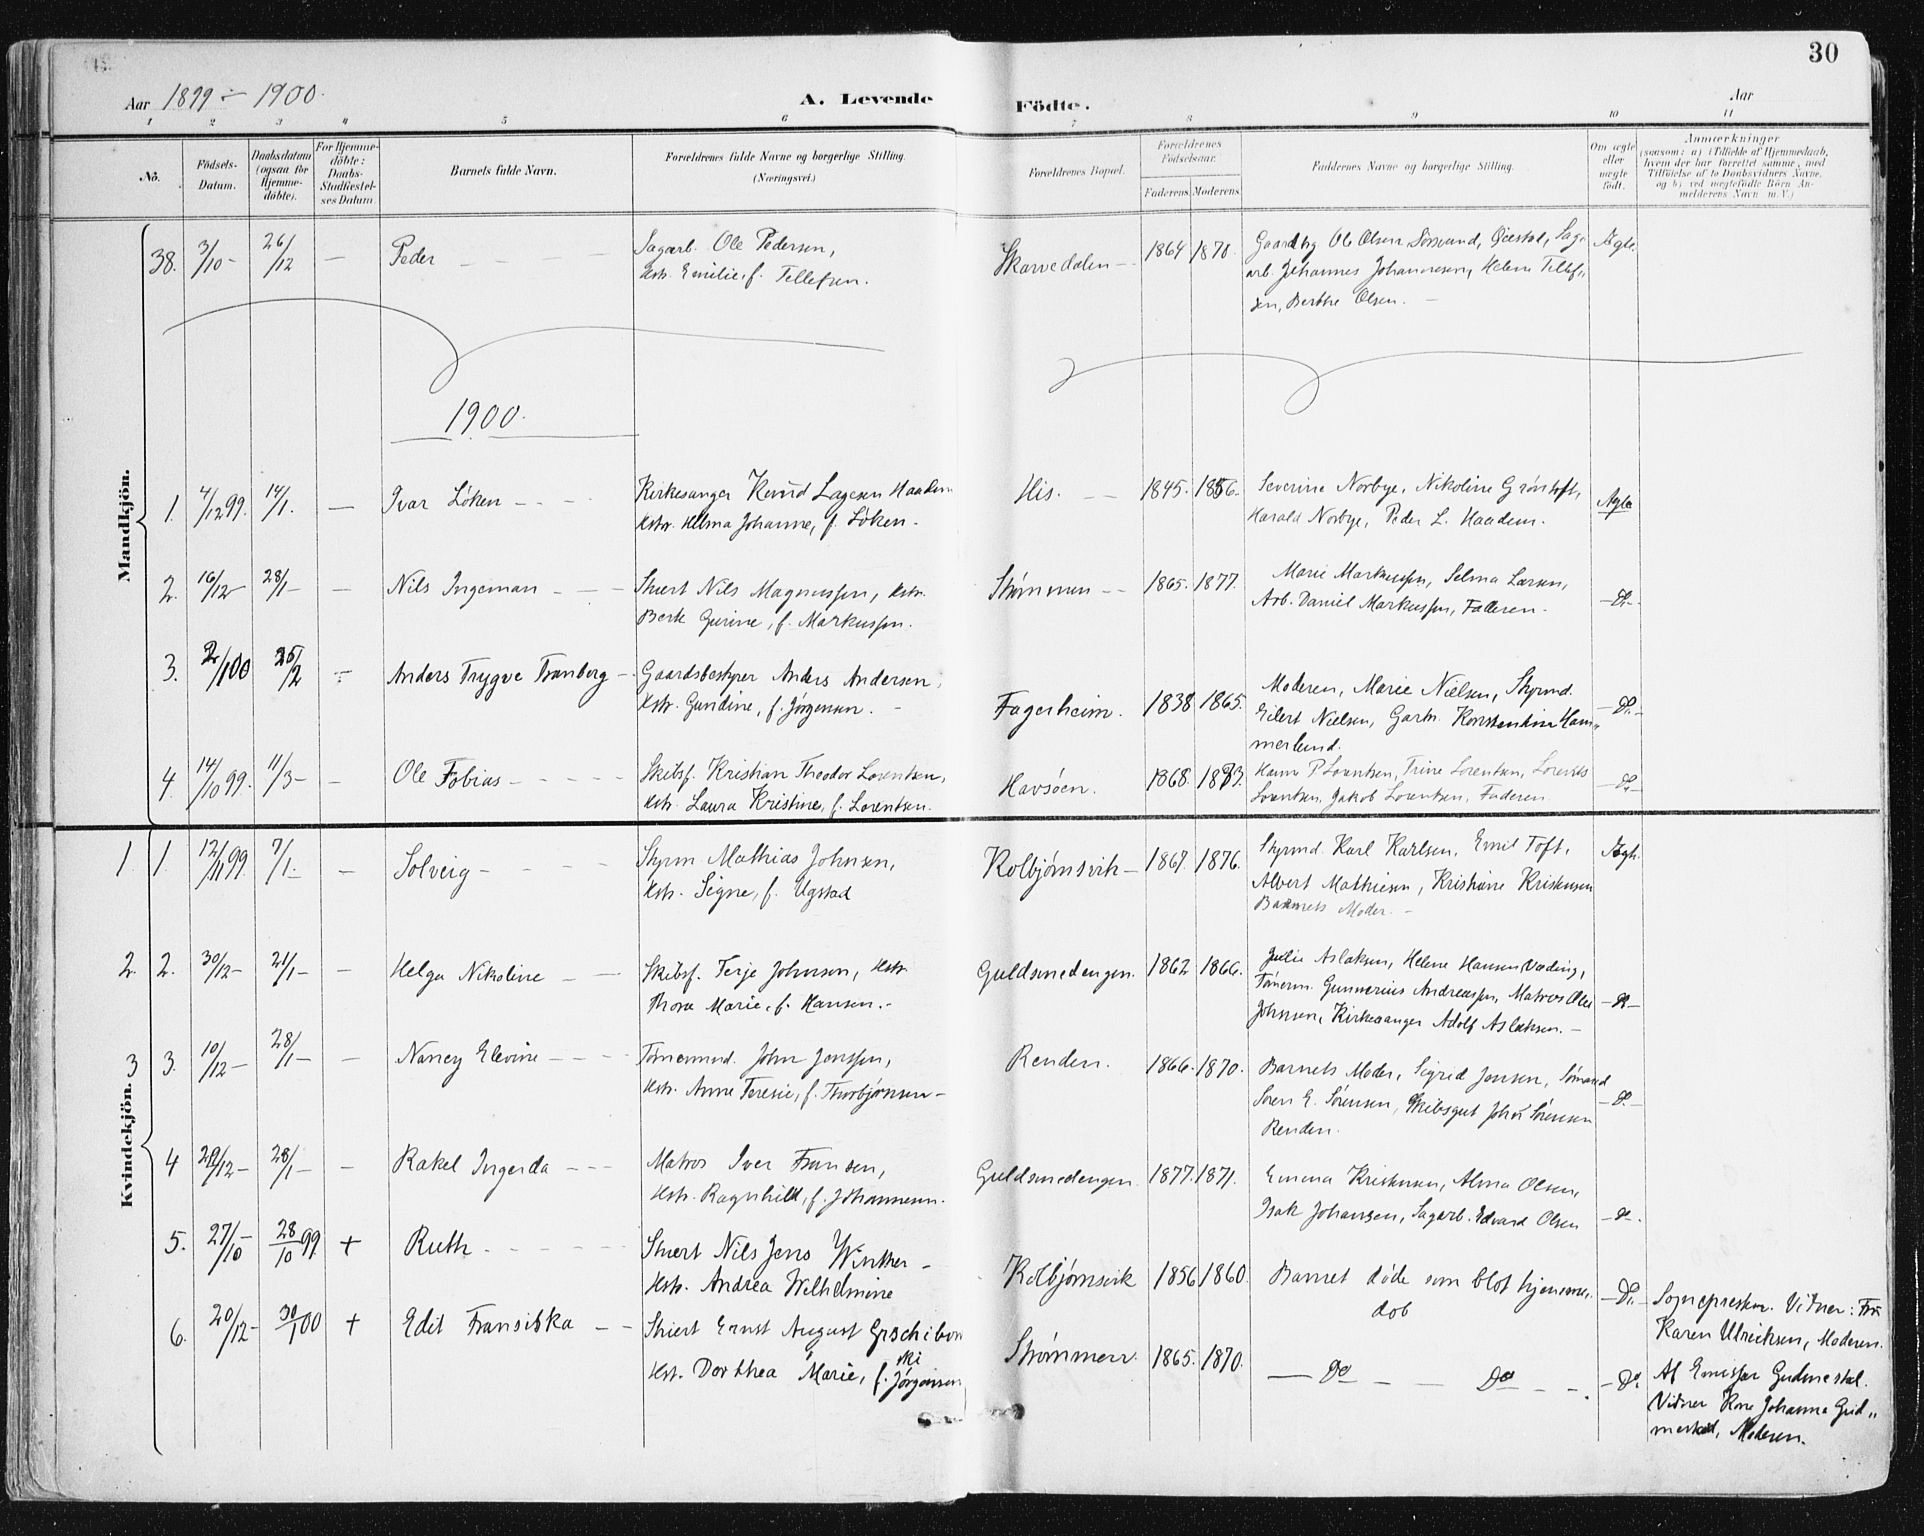 30
Aar 1899 ÷ 1900.
A. Levende Födte.
Aar
1 2 3 4 5 6 7 8 9 10 11
No.
Födsels-
Datum.
Daabsdatum
(ogsaa for
Hjemme-
döbte).
For Hjemme-
döbte:
Daabs-
Stadfæstel-
ses Datum.
Barnets fulde Navn.
Forældrenes fulde Navne og borgerlige Stilling.
(Næringsvei.)
Forældrenes Bopæl.
Forældrenes
Födselsaar.
Faderens. Moderens.
Faddernes Navne og borgerlige Stilling.
Om ægte
eller
uægte
födt.
Anmærkninger
(saasom: a) i Tilfælde af Hjemmedaab,
hvem der har forrettet samme, med
Tilföielse af to Daabsvidners Navne,
og b) ved uægtefödte Börn An-
melderens Navn m. V.)
Mandkjön.
38. 3/10 - 26/12 — Peder Sagarb. Ole Pedersen,
Hstr. Emilie, f. Tellefsen.
Skarvedalen — 1864 1870. Ægte
arb. Johannes Johannesen, Helene Tellef-
sen, Berthe Olsen. —
1900.
1. 4/12 99. 14/1. — Ivar Löken Kirkesanger Knud Lagesen Haadem
Hstr. Helma Johanne, f. Löken.
His. 1845. 1856. Severine Norbye, Nikoline Gröntoft,
Harald Norbye, Peder L. Haadem. Ægte
2. 16/12 - 28/1 - — Nils Ingeman Stuert Nils Magnussen, Hstr.
Berte Gurine, f. Markussen.
Strømmen 1865. 1877. Marie Markussen, Selma Larsen,
Arb. Daniel Markussen, Faderen. — Do —
3. 2/1 00 25/2 ÷ Anders Trygve Tranberg Gaardsbestyrer Anders Andersen,
Hstr. Gundine, f. Jørgensen.
Fagerheim. 1838 1865. Moderen, Marie Nielsen, Styrmd.
Eilert Nielsen, Gartn. Konstantin Ham-
merlund. — Do —
4. 14/10 99. 11/3 - — Ole Tobias Skibsf. Kristian Theodor Lorentsen,
Hstr. Laura Kristine, f. Lorentsen.
Havsøen. 1868 1873. Hanne P Lorentsen, Trine Lorentsen,
Lorentsen, Jakob Lorentsen, Faderen. — Do —
Kvindekjön.
1 1. 12/11 99. 7/1. — Solveig Styrm. Mathias Johnsen,
Hstr. Signe, f. Ugstad
Kolbjørnsvik — 1867. 1876. Styrmd. Karl Karlsen, Emil Toft,
Albert Mathiesen, Kristiane Kristensen
Barnets Moder. — Ægte
2. 2. 30/12 - 21/1 - — Helga Nikoline Skibsf. Terje Johnsen, Hstr.
Thora Marie, f. Hansen.
Guldsmedengen. 1862 1866. Julie Aslaksen, Helene Hansen Væding,
Tømerm. Gunnerius Andreassen, Matros Ole
Johnsen, Kirkesanger Adolf Aslaksen. — Do —
3 3. 10/12 - 28/1 - — Nancy Elevine Tømermd. John Jenssen,
Hstr. Anne Teresie, f. Thorbjørnsen
Renden. 1866. 1870. Barnets Moder, Sigrid Jensen, Sømand
Søren E. Sørensen, Skibsgut Johan Sørensen
Renden. — Do —
4 29/12 - 28/1 - — Rakel Ingerda Matros Iver Fransen,
Hstr. Ragnhild, f. Johannesen.
Guldsmedengen. 1877. 1871. Emma Kristensen, Alma Olsen,
Isak Johansen, Sagarb. Edvard Olsen — Do —
5. 27/10 - 28/10 99 + Ruth Stuert Nils Jens Winther
Hstr. Andrea Wilhelmine
Kolbjørnsvik 1856 1860. Barnet døde som blot hjemme-
døb — Do — Sognepresten. Vidner: Fru
Karen Ulriksen, Moderen.
6. 20/12 - 30/1 00 + Edit Fransiska Stuert Ernst August
Hst. Dorthea Marie, f. Jørgensen
Strømmen. 1865. 1870. — Do — — Do — — Do Af Emissær Gudmestad.
Vidner Kone Johanna Gud-
mestad, Moderen.